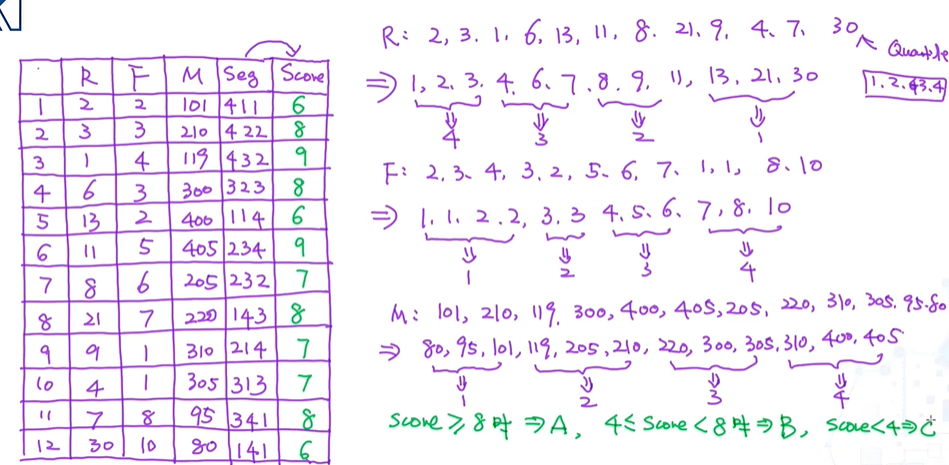 R F M Seg Score
1 2 2 101 411 6
2 3 3 210 422 8
3 1 4 119 432 9
4 6 3 300 323 8
5 13 2 400 114 6
6 11 5 405 234 9
7 8 6 205 232 7
8 21 7 220 143 8
9 9 1 310 214 7
10 4 1 305 313 7
11 7 8 95 341 8
12 30 10 80 141 6
R: 2, 3. 1, 6, 13, 11, 8. 21, 9, 4, 7, 30
Quantile
1.2.3.4
⇒ 1, 2, 3, 4, 6, 7, 8, 9, 11, 13, 21, 30
4 3 2 1
F: 2, 3, 4, 3, 2, 5, 6, 7, 1, 1, 8, 10
⇒ 1, 1, 2, 2, 3, 3 4, 5, 6, 7, 8, 10
1 2 3 4
M: 101, 210, 119, 300, 400, 405, 205, 220, 310, 305, 95, 80
⇒ 80, 95, 101, 119, 205, 210, 220, 300, 305, 310, 400, 405
1 2 3 4
Score ≥ 8 时 ⇒ A, 4 ≤ Score < 8 时 ⇒ B, Score < 4 ⇒ C